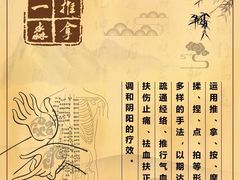 推拿
一淼
运用推、拿、按、摩
揉、捏、点、拍等形
多样的手法，以期达
疏通经络、推行气血
扶伤止痛、祛血扶正
调和阴阳的疗效。